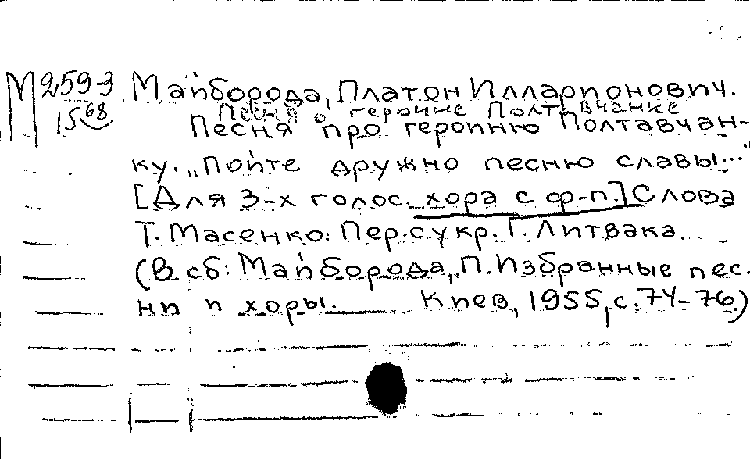 М 2593 Майборода, Платон Илларионович.
15 68 Песня о героине Полтавчанке
Песня про героиню Полтавчан-
ку. „Пойте дружно песню славы..."
[Для 3-х голос. хора с ф-п.] Слова
Т. Масенко. Пер. с укр. Г. Литвака.
(В сб: Майборода, П. Избранные пес.
ни и хоры. Киев, 1955, с. 74-76.)